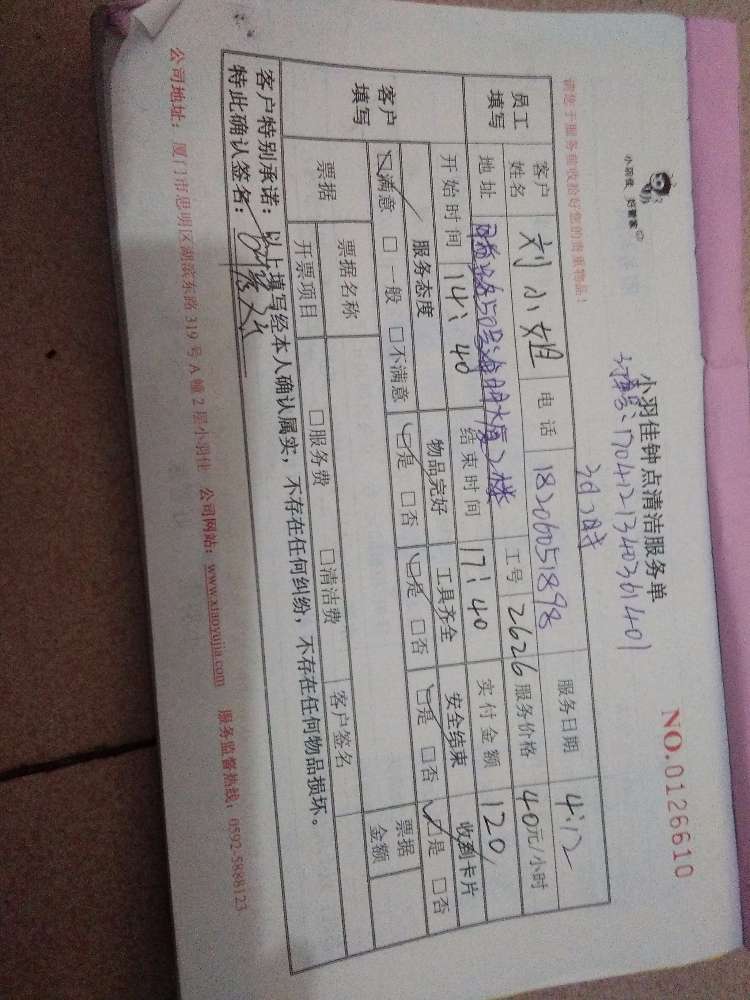 小羽佳 好管家
小羽佳钟点清洁服务单
NO.0126610
订单号:1704121340361401
请您于服务前收拾好您的贵重物品!
3小时
员工填写
客户姓名 刘小姐 电话 18206051898 服务日期 4.12
地址 50号海明大厦2楼 工号 2626 服务价格 40元/小时
开始时间 14:40 结束时间 17:40 实付金额 120
客户填写
服务态度 物品完好 工具齐全 安全结束 收到卡片
☑满意 □一般 □不满意 ☑是 □否 ☑是 □否 ☑是 □否 ☑是 □否
票据 票据名称 客户签名 票据金额
开票项目 □服务费 □清洁费
客户特别承诺:以上填写经本人确认属实,不存在任何纠纷,不存在任何物品损坏。
特此确认签名:
公司地址:厦门市思明区湖滨东路319号A幢2层小羽佳 公司网站:www.xiaoyujia.com 服务监督热线:0592-5888123